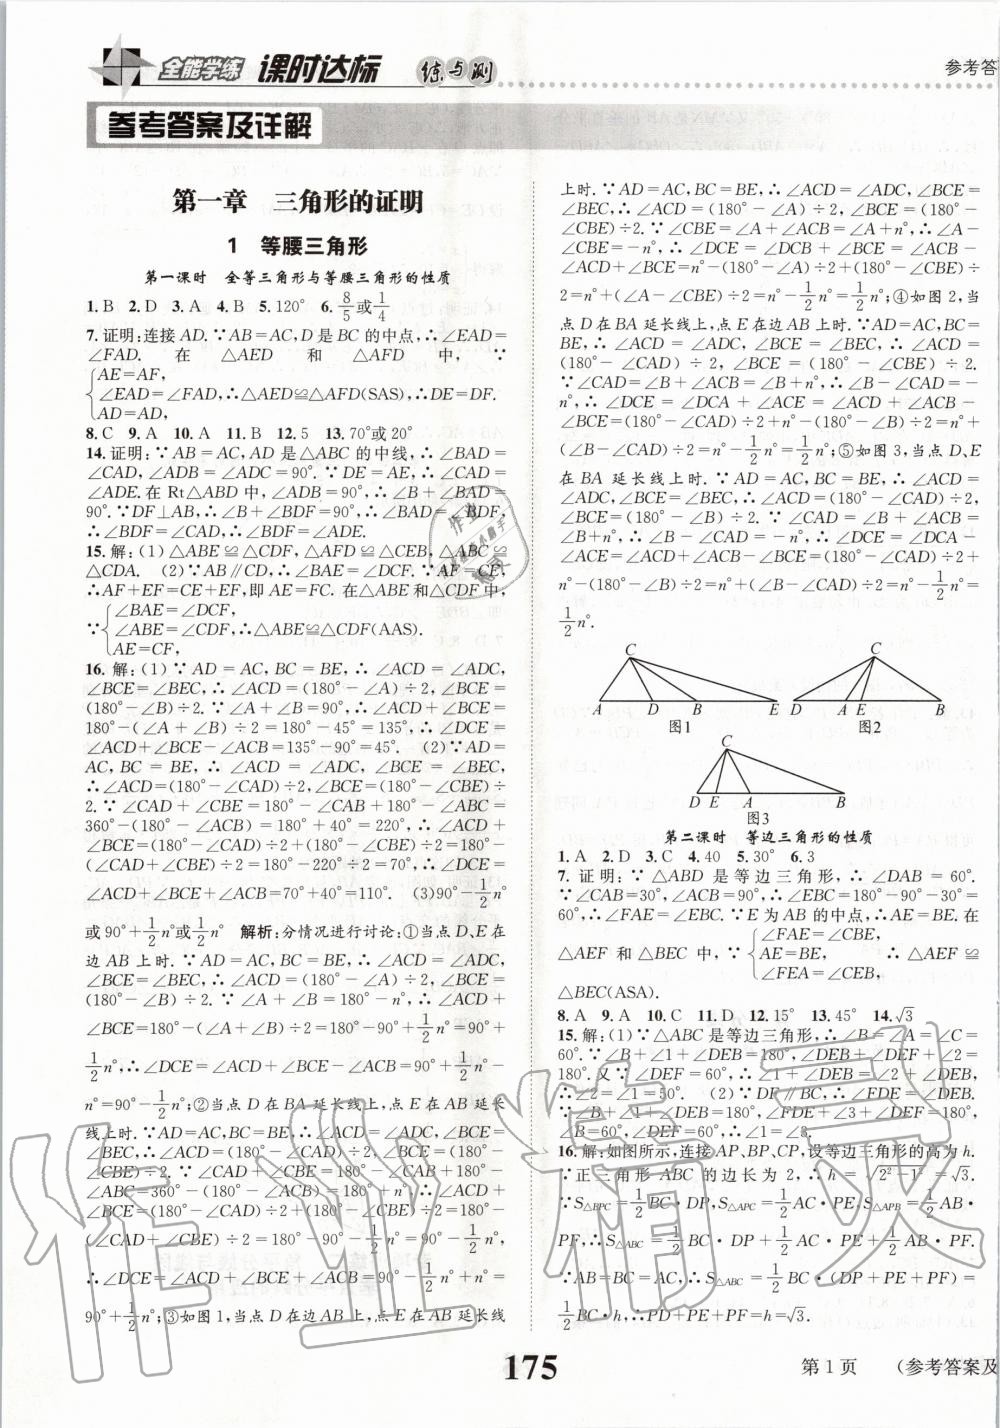 全能学练 课时达标 练与测
参考答
参考答案及详解
第一章 三角形的证明
1 等腰三角形
第一课时 全等三角形与等腰三角形的性质
1. B 2. D 3. A 4. B 5. 120° 6. 8/5或1/4
7. 证明:连接AD. ∵AB=AC,D是BC的中点,∴∠EAD=
∠FAD. 在 △AED 和 △AFD 中, ∵
AE=AF,
∠EAD=∠FAD,∴△AED≌△AFD(SAS),∴DE=DF.
AD=AD,
8. C 9. A 10. A 11. B 12. 5 13. 70°或20°
14. 证明:∵AB=AC,AD是△ABC的中线,∴∠BAD=
∠CAD,∠ADB=∠ADC=90°. ∵DE=AE,∴∠CAD=
∠ADE. 在Rt△ABD中,∠ADB=90°,∴∠B+∠BAD=
90°. ∵DF⊥AB,∴∠B+∠BDF=90°,∴∠BAD=∠BDF,
∴∠BDF=∠CAD,∴∠BDF=∠ADE.
15. 解:(1)△ABE≌△CDF,△AFD≌△CEB,△ABC≌
△CDA. (2)∵AB∥CD,∴∠BAE=∠DCF. ∵AF=CE,
∴AF+EF=CE+EF,即AE=FC. 在△ABE和△CDF中,
∠BAE=∠DCF,
∵ ∠ABE=∠CDF,∴△ABE≌△CDF(AAS).
AE=CF,
16. 解:(1)∵AD=AC,BC=BE,∴∠ACD=∠ADC,
∠BCE=∠BEC,∴∠ACD=(180°-∠A)÷2,∠BCE=
(180°-∠B)÷2. ∵∠A+∠B=90°,∴∠ACD+∠BCE=
180°-(∠A+∠B)÷2=180°-45°=135°,∴∠DCE=
∠ACD+∠BCE-∠ACB=135°-90°=45°. (2)∵AD=
AC,BC=BE,∴∠ACD=∠ADC,∠BCE=∠BEC,
∴∠ACD=(180°-∠CAD)÷2,∠BCE=(180°-∠CBE)÷
2. ∵∠CAD+∠CBE=180°-∠CAB+180°-∠ABC=
360°-(180°-∠ACB)=180°+40°=220°,∴∠ACD+
∠BCE=(180°-∠CAD)÷2+(180°-∠CBE)÷2=180°-
(∠CAD+∠CBE)÷2=180°-220°÷2=70°,∴∠DCE=
∠ACD+∠BCE+∠ACB=70°+40°=110°. (3)90°-1/2n°
或90°+1/2n°或1/2n° 解析:分情况进行讨论:①当点D、E在
边AB上时. ∵AD=AC,BC=BE,∴∠ACD=∠ADC,
∠BCE=∠BEC,∴∠ACD=(180°-∠A)÷2,∠BCE=
(180°-∠B)÷2. ∵∠A+∠B=180°-n°,∴∠ACD+
∠BCE=180°-(∠A+∠B)÷2=180°-90°+1/2n°=90°+
1/2n°,∴∠DCE=∠ACD+∠BCE-∠ACB=90°+1/2n°-
n°=90°-1/2n°;②当点D在BA延长线上,点E在AB延长
线上时. ∵AD=AC,BC=BE,∴∠ACD=∠ADC,∠BCE=
∠BEC,∴∠ACD=(180°-∠CAD)÷2,∠BCE=(180°-
∠CBE)÷2. ∵∠CAD+∠CBE=180°-∠CAB+180°-
∠ABC=360°-(180°-∠ACB)=180°+n°,∴∠ACD+
∠BCE=(180°-∠CAD)÷2+(180°-∠CBE)÷2=180°-
(∠CAD+∠CBE)÷2=180°-90°-1/2n°=90°-1/2n°,
∴∠DCE=∠ACD+∠BCE+∠ACB=90°-1/2n°+n°=
90°+1/2n°;③如图1,当点D在边AB上,点E在AB延长线
上时. ∵AD=AC,BC=BE,∴∠ACD=∠ADC,∠BCE=
∠BEC,∴∠ACD=(180°-∠A)÷2,∠BCE=(180°-
∠CBE)÷2. ∵∠CBE=∠A+∠ACB=∠A+n°,∴∠A-
∠CBE=-n°,∴∠DCE=∠DCB+∠BCE=∠ACB-
∠ACD+∠BCE=n°-(180°-∠A)÷2+(180°-∠CBE)÷
2=n°+(∠A-∠CBE)÷2=n°-1/2n°=1/2n°;④如图2,当
点D在BA延长线上,点E在边AB上时. ∵AD=AC,BC=
BE,∴∠ACD=∠ADC,∠BCE=∠BEC,∴∠ACD=
(180°-∠CAD)÷2,∠BCE=(180°-∠CBE)÷2.
∵∠CAD=∠B+∠ACB=∠B+n°,∴∠B-∠CAD=-
n°,∴∠DCE=∠DCA+∠ACE=∠ACD+∠ACB-
∠BCE=(180°-∠CAD)÷2+n°-(180°-∠B)÷2=n°+
(∠B-∠CAD)÷2=n°-1/2n°=1/2n°;⑤如图3,当点D、E
在BA延长线上时. ∵AD=AC,BC=BE,∴∠ACD=
∠ADC,∠BCE=∠BEC,∴∠ACD=(180°-∠CAD)÷2,
∠BCE=(180°-∠B)÷2. ∵∠CAD=∠B+∠ACB=
∠B+n°,∴∠B-∠CAD=-n°,∴∠DCE=∠DCA-
∠ACE=∠ACD+∠ACB-∠BCE=(180°-∠CAD)÷2+
n°-(180°-∠B)÷2=n°+(∠B-∠CAD)÷2=n°-1/2n°=
1/2n°.
C
A D B E
图1
C
D A E B
图2
C
D E A B
图3
第二课时 等边三角形的性质
1. A 2. D 3. C 4. 40 5. 30° 6. 3
7. 证明:∵△ABD是等边三角形,∴∠DAB=60°.
∵∠CAB=30°,∠ACB=90°,∴∠EBC=180°-90°-30°=
60°,∴∠FAE=∠EBC. ∵E为AB的中点,∴AE=BE. 在
∠FAE=∠CBE,
△AEF和△BEC中,∵ AE=BE, ∴△AEF≌
∠FEA=∠CEB,
△BEC(ASA).
8. A 9. A 10. C 11. D 12. 15° 13. 45° 14. √3
15. 解:(1)∵△ABC是等边三角形,∴∠B=∠A=∠C=
60°. ∵∠B+∠1+∠DEB=180°,∠DEB+∠DEF+∠2=
180°. 又∵∠DEF=60°,∴∠1+∠DEB=∠2+∠DEB=
120°,∴∠2=∠1=50°. (2)∵DF∥BC,∴∠FDE=∠DEB.
∵∠B+∠1+∠DEB=180°,∠FDE+∠3+∠DEF=180°,
∠B=60°,∠DEF=60°,∴∠1=∠3.
16. 解:如图所示,连接AP、BP、CP,设等边三角形的高为h.
∵正三角形ABC的边长为2,∴h=√(2²-1²)=√3.
∵S△BPC=1/2BC·DP,S△APC=1/2AC·PE,S△APB=1/2AB·
PF,∴S△ABC=1/2BC·DP+1/2AC·PE+1/2AB·PF.
∵AB=BC=AC,∴S△ABC=1/2BC·(DP+PE+PF)=
1/2BC·h,∴PD+PE+PF=h=√3.
175
第1页
(参考答案及
作业精灵